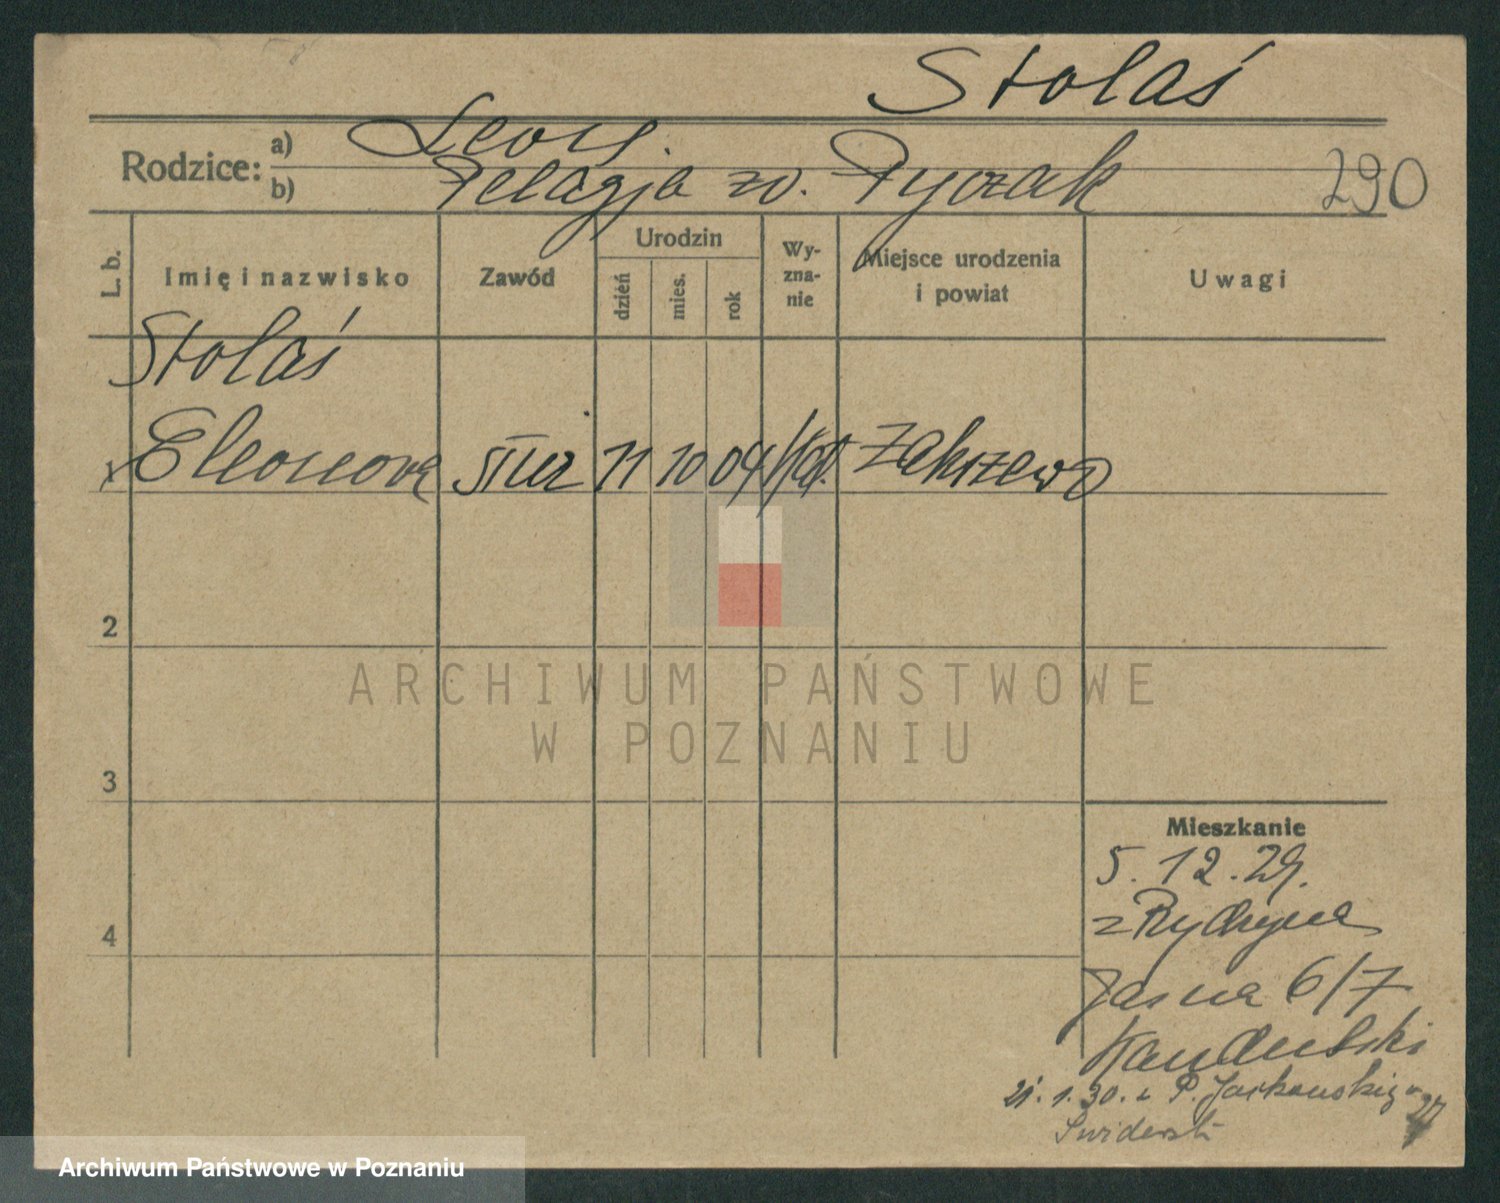 Stolaś
Rodzice:
a) Leon.
b) Pelagja zd. Pyczak
290
L. b.
Imię i nazwisko
Zawód
Urodzin
dzień
mies.
rok
Wy-
zna-
nie
Miejsce urodzenia
i powiat
Uwagi
Stolaś
1 Eleonora służ 11 10 04 kat. Zakrzewo
2
3
4
ARCHIWUM PAŃSTWOWE
W POZNANIU
Mieszkanie
5.12.29.
z Rydzyna
Jasna 6/7
Kandulski
21.1.30. P. Jackowskiego 27
Swiderski
Archiwum Państwowe w Poznaniu